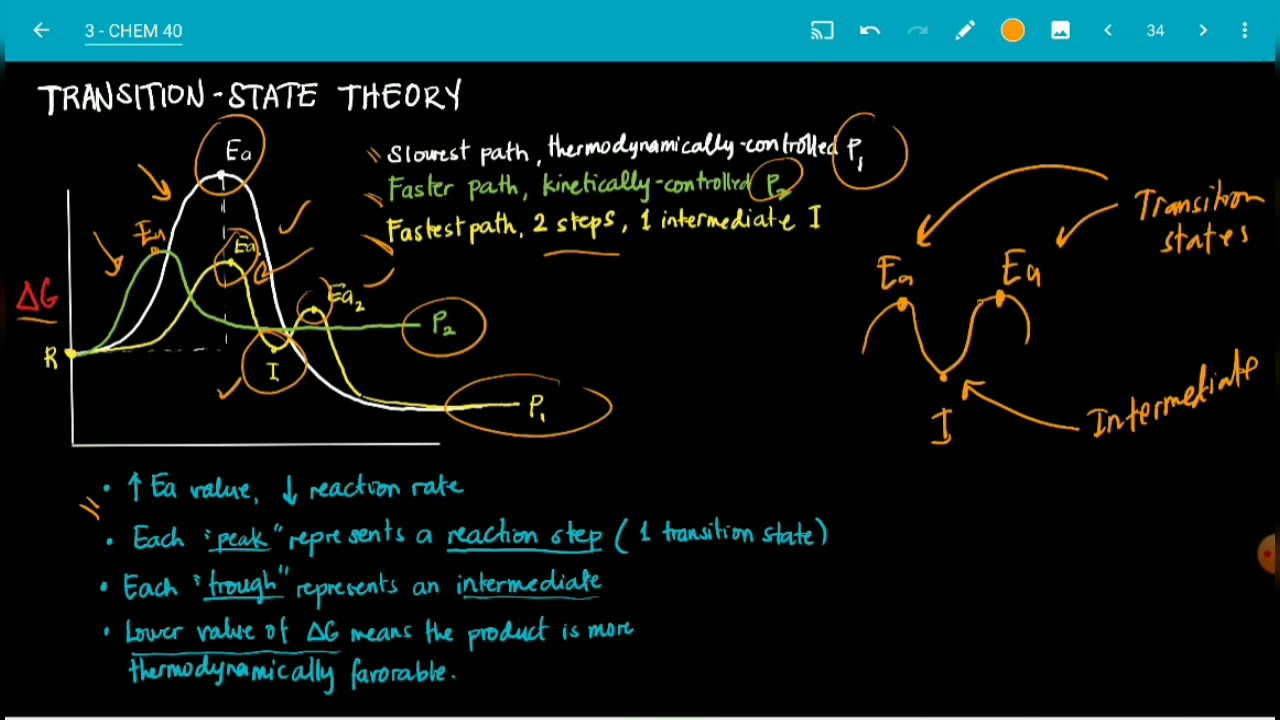 3 - CHEM 40
34
TRANSITION-STATE THEORY
Ea
Slowest path, thermodynamically-controlled P₁
Faster path, kinetically-controlled P₂
Fastest path, 2 steps, 1 intermediate I
Transition
states
Ea
Ea
Ea
Ea
Ea₂
ΔG
P₂
R
I
P₁
I
Intermediate
• ↑ Ea value, ↓ reaction rate
• Each "peak" represents a reaction step (1 transition state)
• Each "trough" represents an intermediate
• Lower value of ΔG means the product is more
thermodynamically favorable.